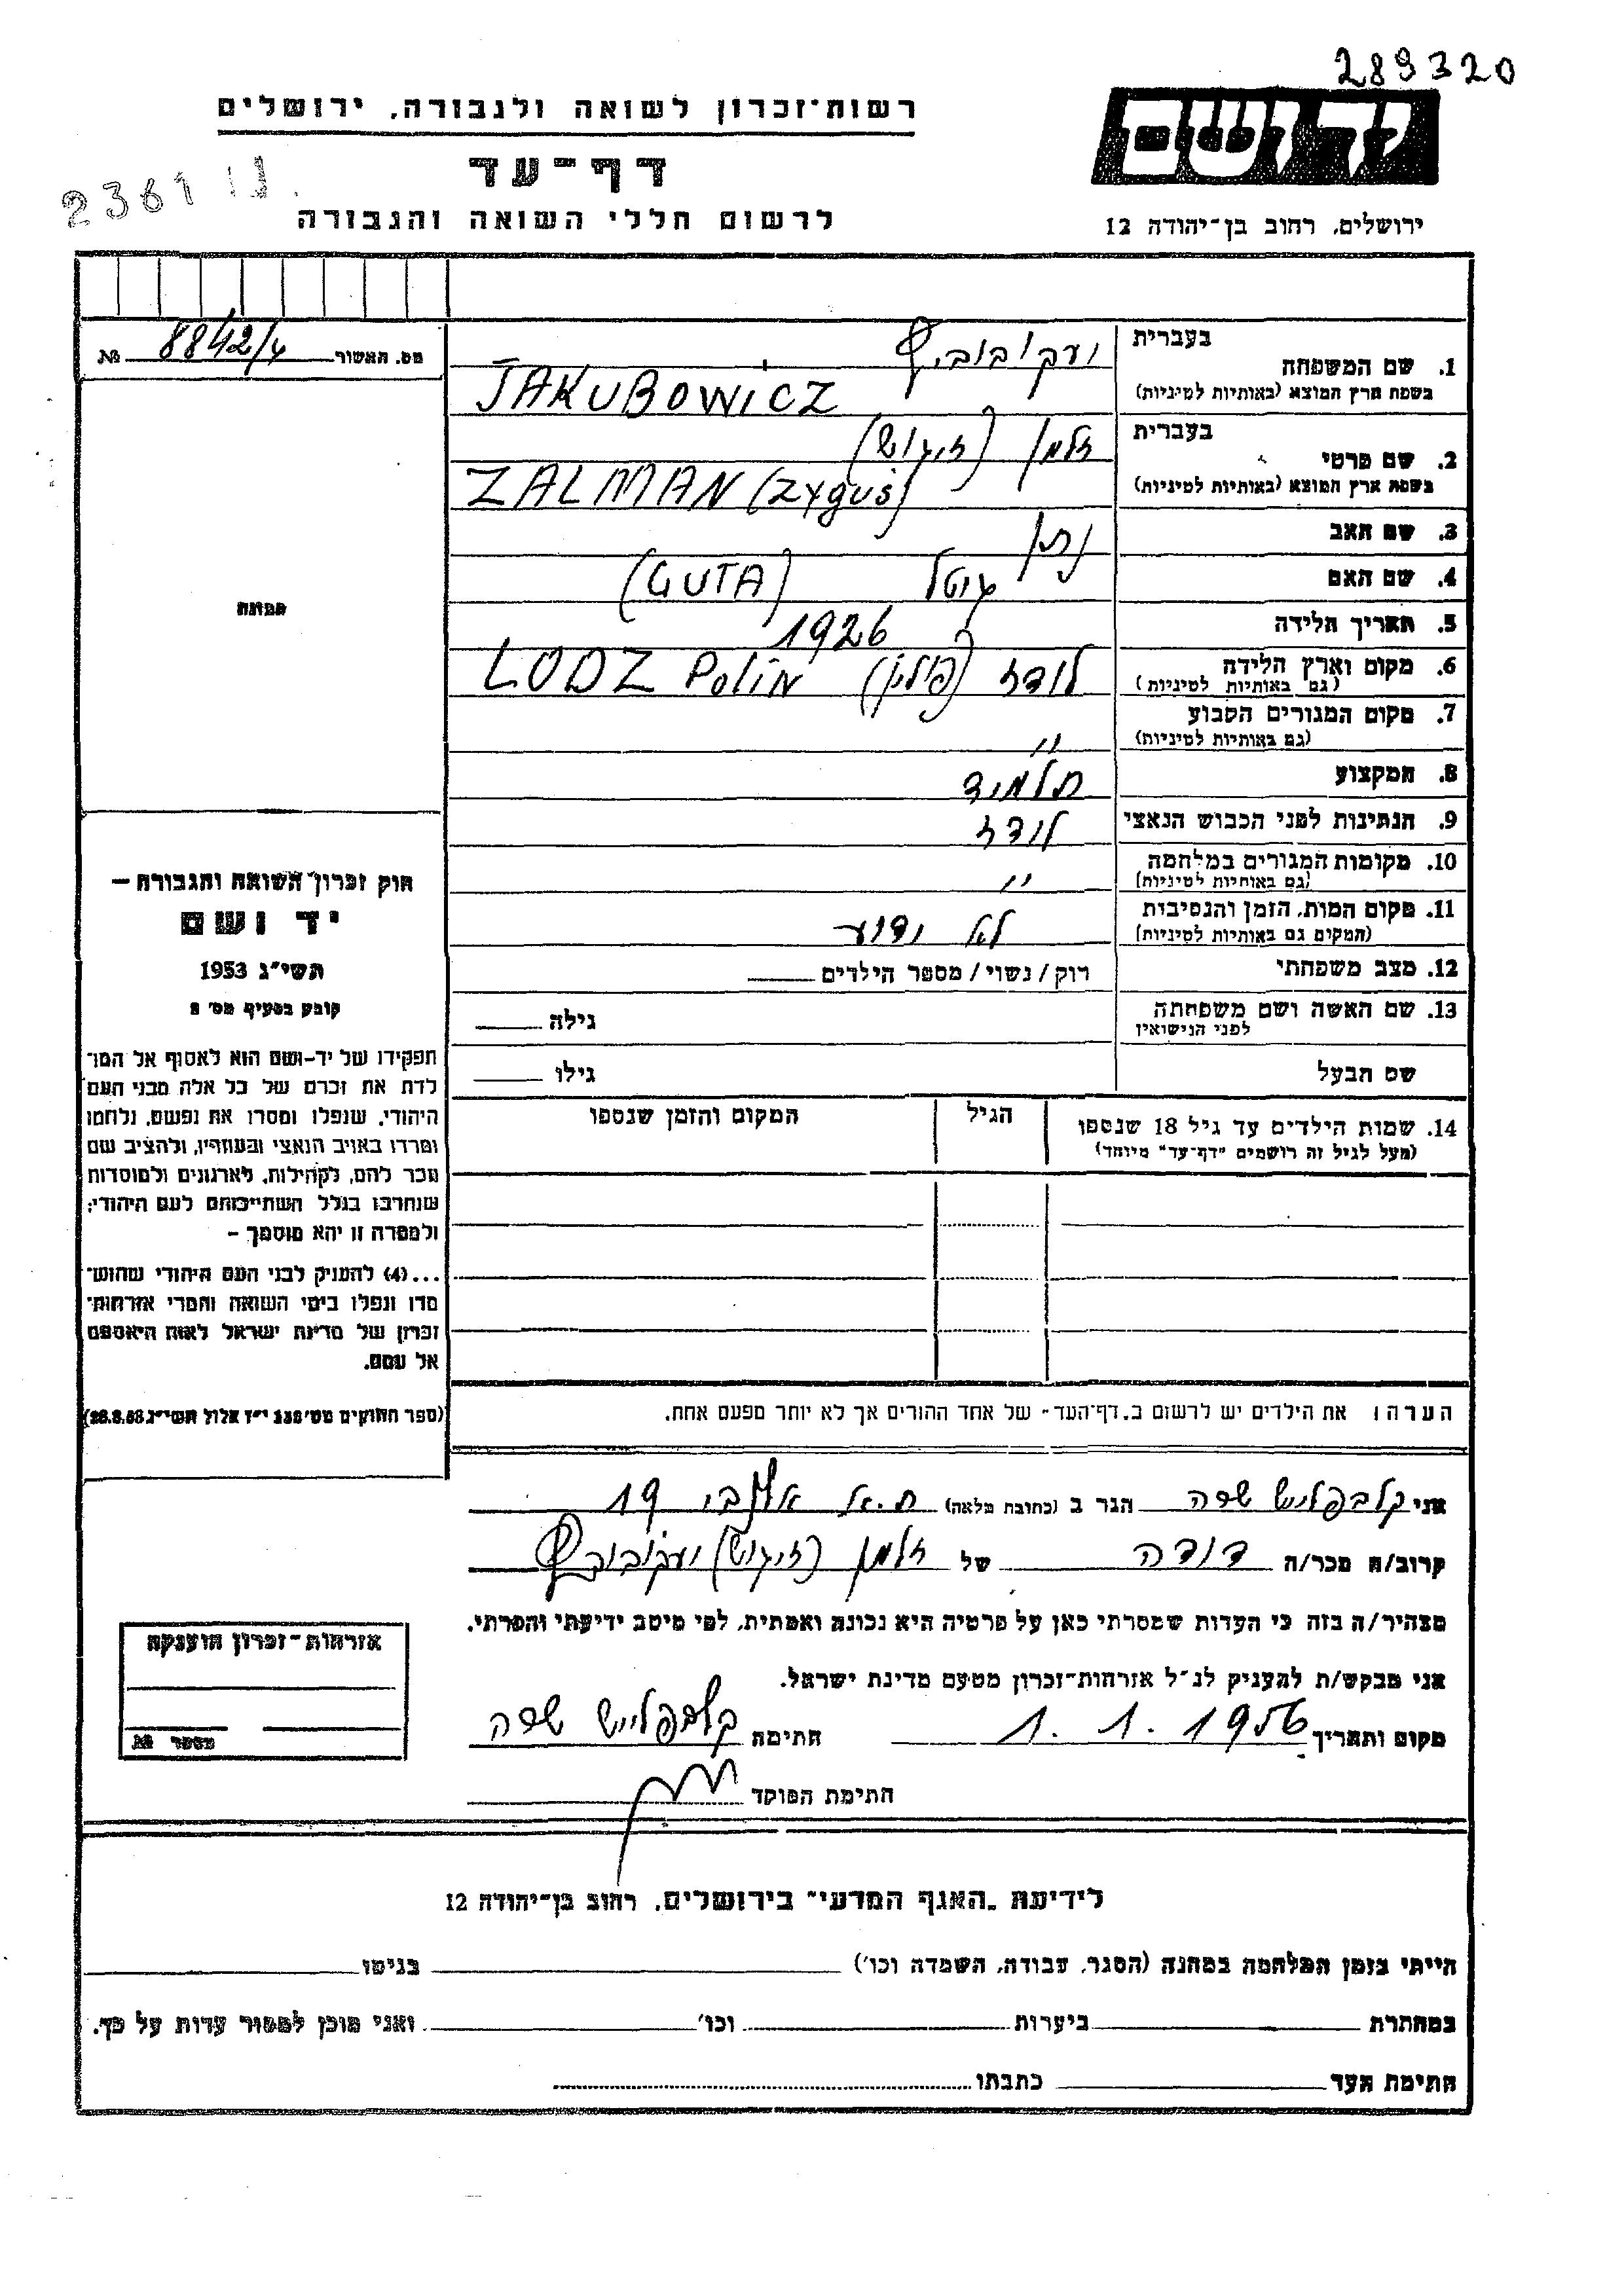 289320
רשות־זכרון לשואה ולגבורה, ירושלים
יד ושם
דף־עד
2361
לרשום חללי השואה והגבורה
ירושלים, רחוב בן־יהודה 12
מס. האשור 8842/4 №
1. שם המשפחה
בעברית יעקובוביץ
בשפת ארץ המוצא (באותיות לטיניות) JAKUBOWICZ
2. שם פרטי
בעברית זלמן (זיגוש)
בשפת ארץ המוצא (באותיות לטיניות) ZALMAN (Zyguś)
3. שם האב נתן
4. שם האם גיטל (GUTA)
5. תאריך הלידה 1926
6. מקום וארץ הלידה לודז (פולין) LODZ Polin
(גם באותיות לטיניות)
7. מקום המגורים הקבוע
(גם באותיות לטיניות) "
8. המקצוע תלמיד
9. הנתינות לפני הכבוש הנאצי לודז
10. מקומות המגורים במלחמה
(גם באותיות לטיניות) "
11. מקום המות, הזמן והנסיבות לא ידוע
(המקום גם באותיות לטיניות)
12. מצב משפחתי רוק/נשוי/מספר הילדים
13. שם האשה ושם משפחתה גילה
לפני הנישואין
שם הבעל גילו
14. שמות הילדים עד גיל 18 שנספו הגיל המקום והזמן שנספו
(מעל לגיל זה רושמים "דף־עד" מיוחד)
תמונה
חוק זכרון השואה והגבורה —
יד ושם
תשי"ג 1953
קובע בסעיף מס' 2
תפקידו של יד-ושם הוא לאסוף אל המו־
לדת את זכרם של כל אלה מבני העם
היהודי, שנפלו ומסרו את נפשם, נלחמו
ומרדו באויב הנאצי ובעוזריו, ולהציב שם
וזכר להם, לקהילות, לארגונים ולמוסדות
שנחרבו בגלל השתייכותם לעם היהודי;
ולמטרה זו יהא מוסמך –
...(4) להעניק לבני העם היהודי שהוש־
מדו ונפלו בימי השואה והמרי אזרחות־
זכרון של מדינת ישראל לאות היאספם
אל עמם.
(ספר החוקים מס' 132 י"ז אלול תשי"ג 28.8.53)
הערה: את הילדים יש לרשום ב„דף־העד" של אחד ההורים אך לא יותר מפעם אחת.
אני קלבפליש שרה הגר ב (כתובת מלאה) ת.א אלנבי 19
קרוב/ה מכר/ה דודה של זלמן (זיגוש) יעקובוביץ
מצהיר/ה בזה כי העדות שמסרתי כאן על פרטיה היא נכונה ואמתית, לפי מיטב ידיעתי והכרתי.
אני מבקש/ת להעניק לנ"ל אזרחות־זכרון מטעם מדינת ישראל.
מקום ותאריך 1.1.1956 חתימה קלבפלייש שרה
חתימת הפוקד
אזרחות־זכרון הוענקה
מספר №
לידיעת „האגף המדעי" בירושלים, רחוב בן־יהודה 12
הייתי בזמן המלחמה במחנה (הסגר, עבודה, השמדה וכו') בגיטו
במחתרת ביערות וכו' ואני מוכן למסור עדות על כך.
חתימת העד כתבתו